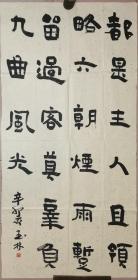 都是主人且領
略六朝煙雨暫
留過客莫辜負
九曲風光
辛卯玉林